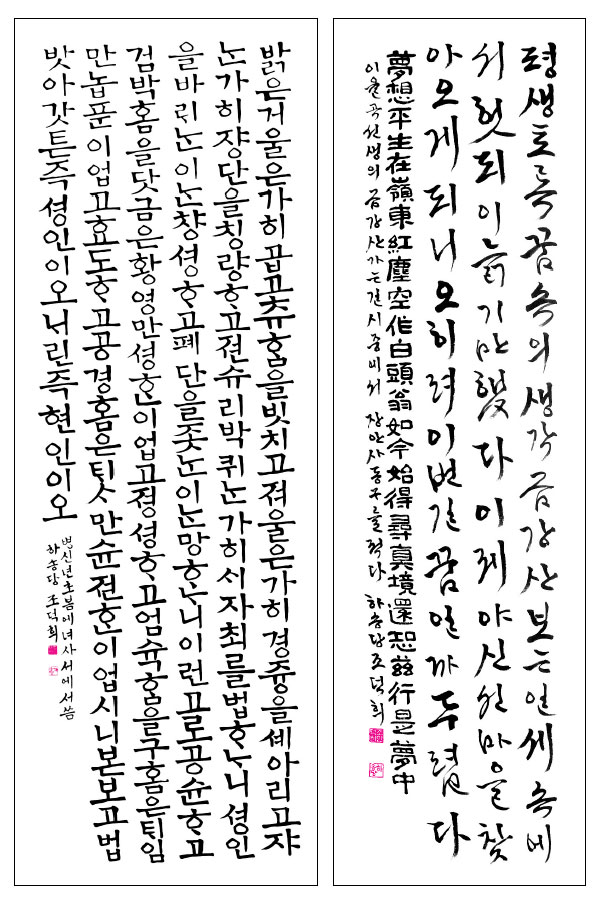 평생토록 꿈속의 생각 금강산 보는 일 세속에
서 헛되이 늙기만 했다 이제야 신선 마을 찾
아오게 되니 오히려 이번 길 꿈일까 두렵다
夢想平生在嶺東紅塵空作白頭翁如今始得尋真境還恐茲行是夢中
이율곡선생의 금강산가는길시중에서 장안사동구를적다 하송당조덕희
밝은거울은가히곱고츄홈을빗치고져울은가히경즁을셰아리고쟈
는가히쟝단을칭량ᄒᆞ고젼슈리박퀴는가히서자최를법ᄒᆞᄂᆞ니셩인
을바리는이는챵셩ᄒᆞ고폐단을좃는이는망ᄒᆞᄂᆞ니이런고로공슌ᄒᆞ고
검박홈을닷금은황영만셩ᄒᆞᆫ이업고졍셩ᄒᆞ고엄슉홈을구홈은퇴임
만놉푼이업고효도ᄒᆞ고공경홈은만슌젼ᄒᆞᆫ이업시니본보고법
밧아갓튼즉셩인이오너린즉현인이오
병신년초봄에녀사서에서씀
하송당 조덕희